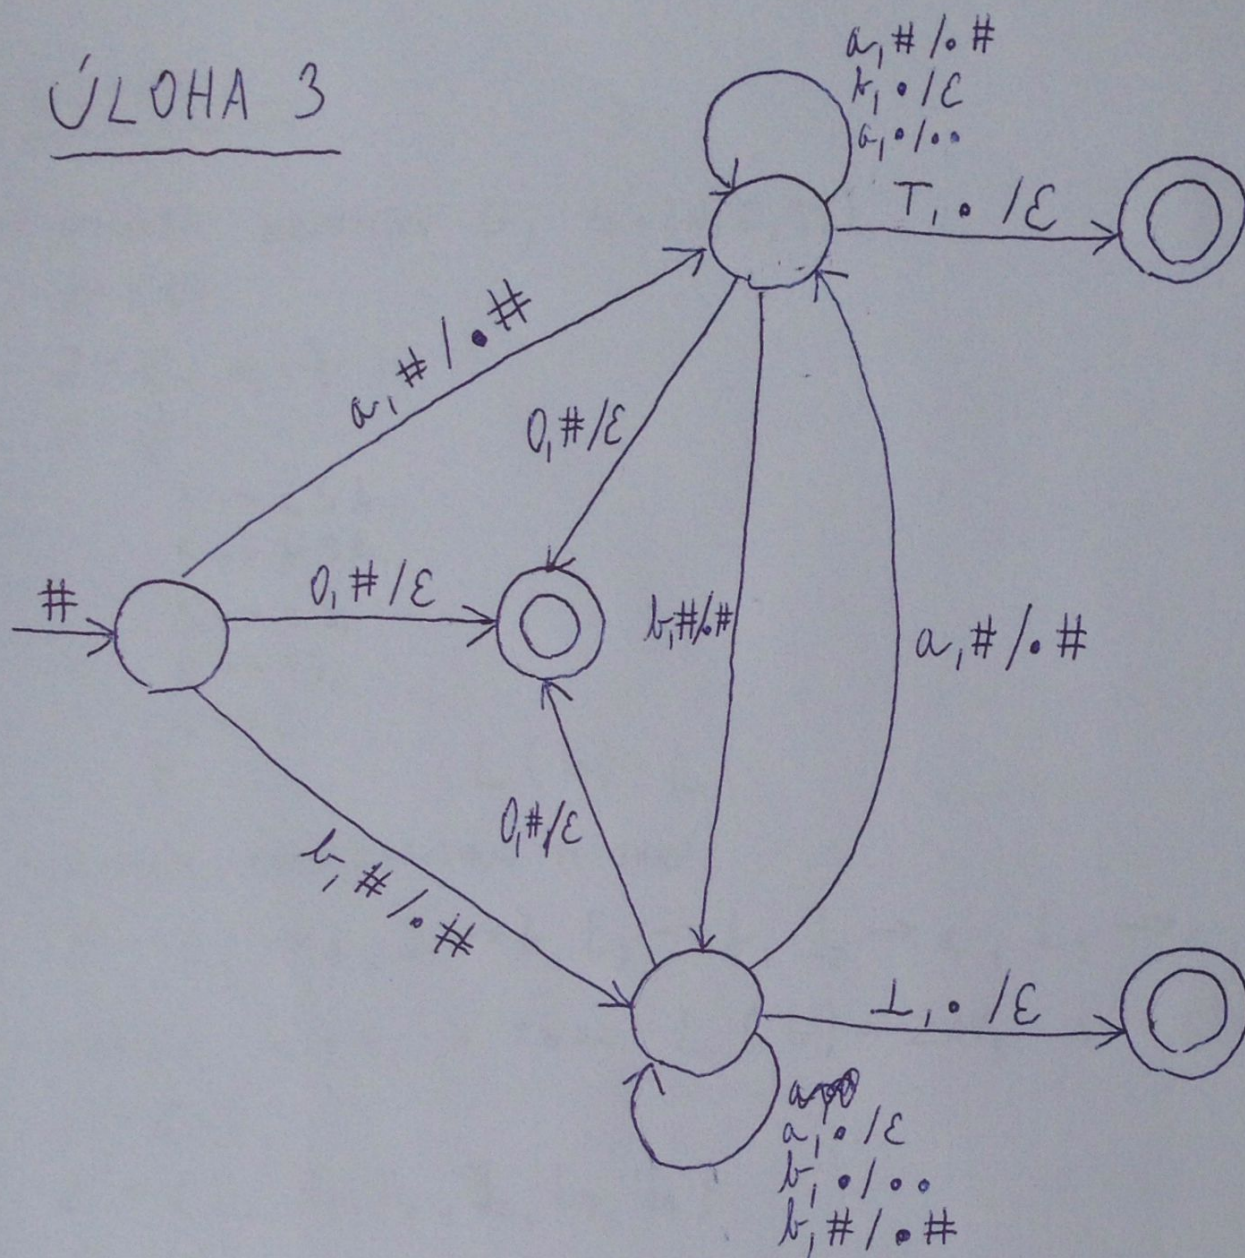 ÚLOHA 3
a, # / • #
b, • / ε
a, • / ••
T, • / ε
a, # / • #
0, # / ε
#
0, # / ε
b, # / • #
a, # / • #
0, # / ε
b, # / • #
⊥, • / ε
a, • / ε
b, • / ••
b, # / • #